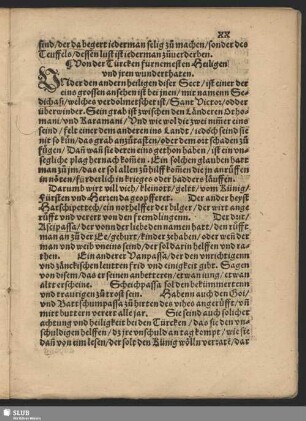 XX
sind/der da begert iederman selig zů machen/sonder des
Teuffels/dessen lust ist iederman zůuerderben.
¶Von der Türcken furnemesten Heiligen
vnd jren wunderthaten.
VNder den andern heiligen diser Sect/ist einer der
eins grossen ansehen ist bei jnen/mit namenn Se
dichasi/welches verdolmetschet ist/Sant Victor/odder
überwinder. Sein grab ist zwischen den Länderen Ottho-
mani/vnd Karamani/Vnd wie wol die zwei einander
feind/felt einer dem anderen ins Landt/iedoch seind sie
nit so kün/das grab anzůrasten/oder dem ort schaden zů
fügen/Dañ wañ sie deren eins gethon haben/ist ein vn-
segliche plag hernach komen. Ein solchen glauben hatt
man zů jm/das er sol allen zů hilff komen die jn anrůffen
in nöten/fürderlich in krieges oder hadders läuffen.
Darumb wirt vill vich/kleinott/gelt/vom König/
Fürsten vnd Herren da geopfferet. Der ander heyst
Hatschipettech/ein nothelffer der bilger/der wirt ange
růfft vnd verert von den fremdlingenn. Der drit/
Ascipassa/der von der liebe den namen hatt/den růfft
man an zů der Ee/geburt/kinder zehaben/oder wen der
man vnd weib vneins seind/der sol darin helffen vnd ra-
then. Ein anderer Vanpassa/der den vnrichtigenn
vnd zänckischen leutten frid vnd einigkeit gibt. Sagen
von disem/das er seinen anbetteren/etwan jung/etwan
alt erscheine. Scheichpassa sol den bekümmertenn
vnd traurigen zů trost sein. Habenn auch den Goi/
vnd Bartschumpassa zů hutten des vihes angerůfft/vñ
mit buttern verert alle jar. Sie seind auch solicher
achtung vnd heiligkeit bei den Türcken/das sie den vn-
schuldigen helffen/dz jre vnschuld an tag kompt/wie sie
dañ von eim lesen/der solt den König wölln verratē/dar
SLUB